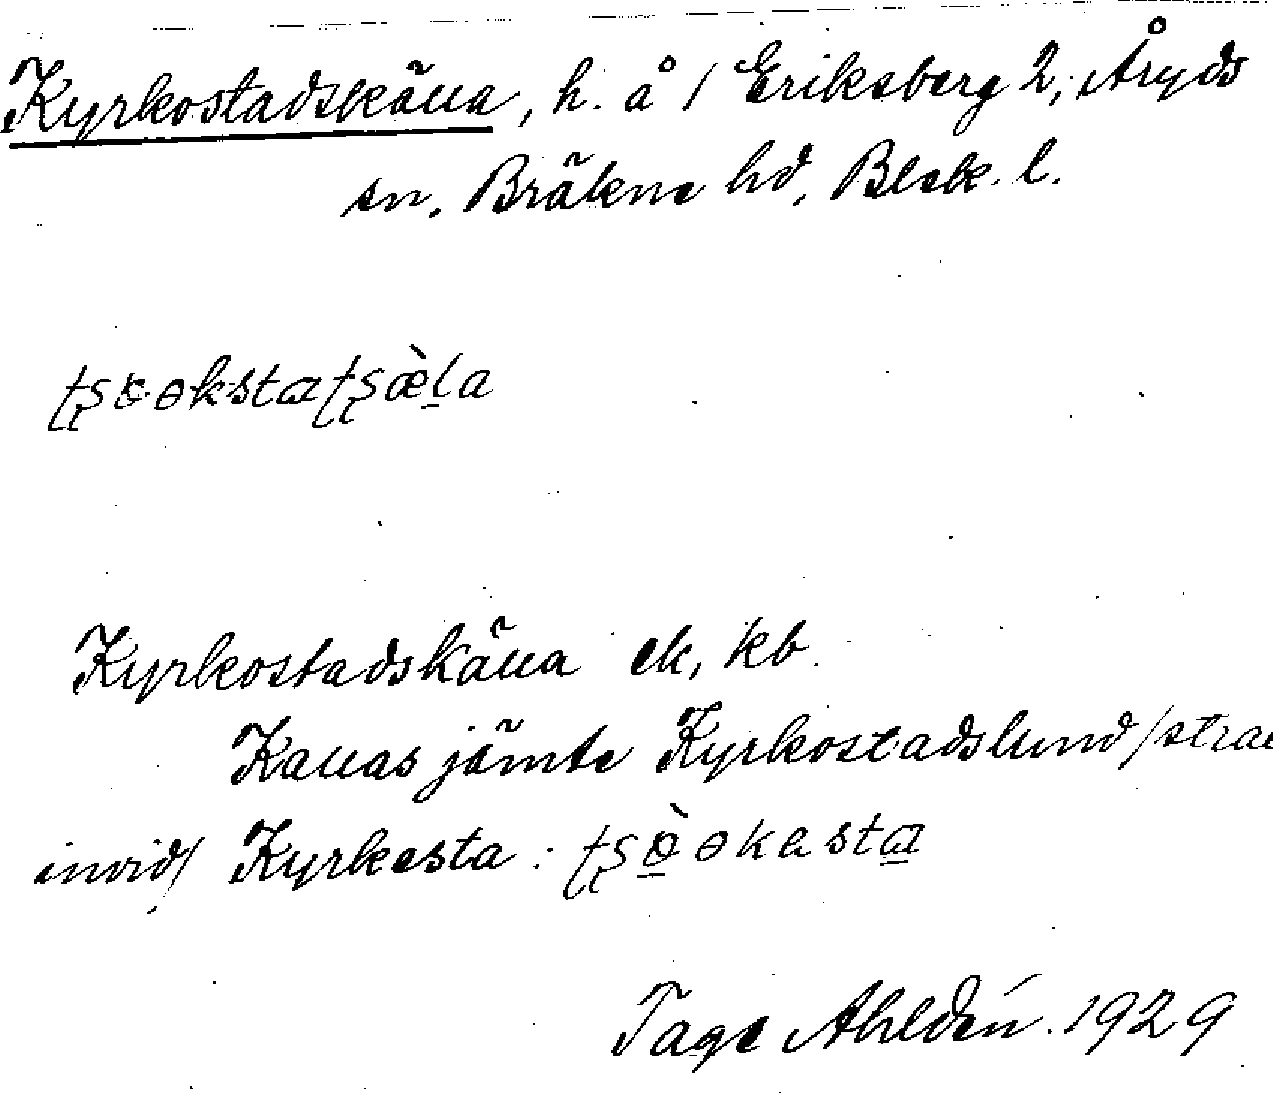 Kyrkostadskälla, h. å 1 Eriksberg 2, Åryds
sn, Bräkne hd, Blek. l.
Kyrkostadskälla ek, kb.
Kallas jämte Kyrkostadslund /strax
invid/ Kyrkesta:
Tage Ahldén. 1929